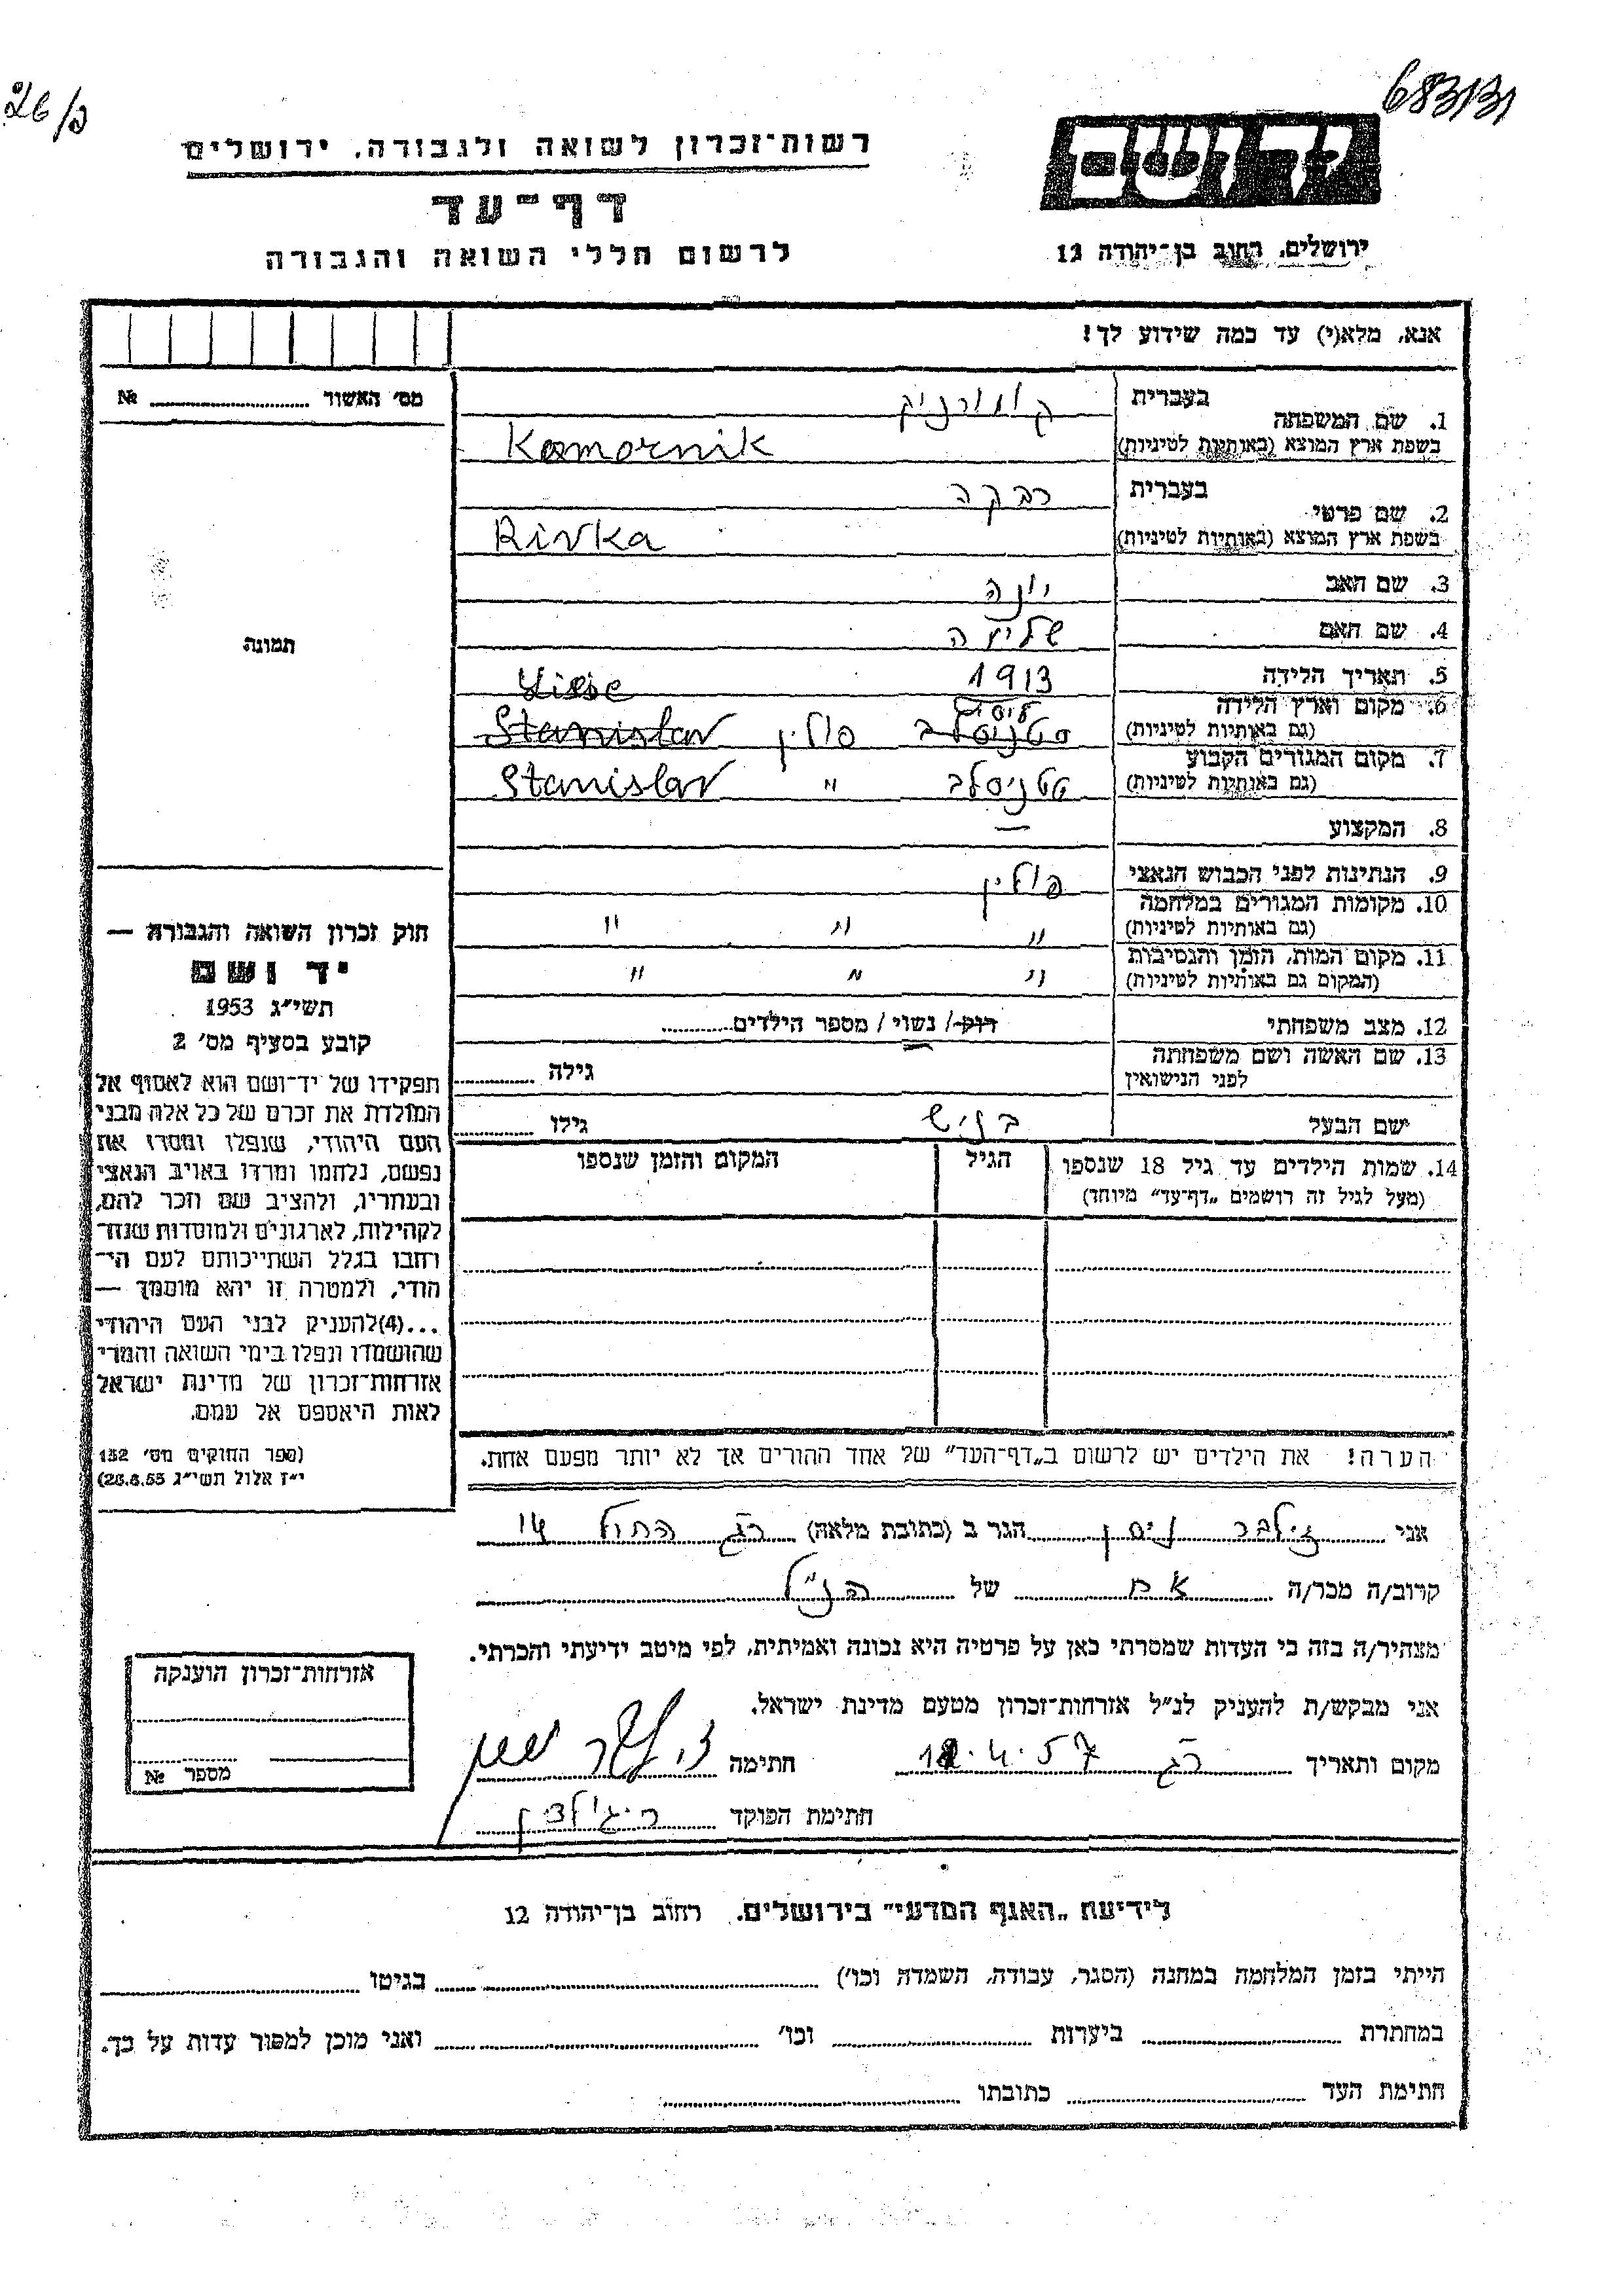 26/כ
683131
יד ושם
רשות־זכרון לשואה ולגבורה, ירושלים
דף־עד
ירושלים, רחוב בן־יהודה 12
לרשום חללי השואה והגבורה
אנא, מלא(י) עד כמה שידוע לך!
מס׳ האשור № 
1. שם המשפחה בעברית קומורניק
בשפת ארץ המוצא (באותיות לטיניות) Komornik
2. שם פרטי בעברית רבקה
בשפת ארץ המוצא (באותיות לטיניות) Rivka
3. שם האב יונה
4. שם האם
5. תאריך הלידה 1913
6. מקום וארץ הלידה
(גם באותיות לטיניות) סטניסלב פולין Stanislav
7. מקום המגורים הקבוע
(גם באותיות לטיניות) סטניסלב " Stanislav
8. המקצוע —
9. הנתינות לפני הכבוש הנאצי פולין
10. מקומות המגורים במלחמה
(גם באותיות לטיניות) " " "
11. מקום המות, הזמן והנסיבות
(המקום גם באותיות לטיניות) " " "
12. מצב משפחתי רוק/ נשוי/ מספר הילדים
13. שם האשה ושם משפחתה
לפני הנישואין גילה
ישם הבעל בניש גילו
14. שמות הילדים עד גיל 18 שנספו הגיל המקום והזמן שנספו
(מעל לגיל זה רושמים „דף־עד" מיוחד)
הערה! את הילדים יש לרשום ב„דף־העד" של אחד ההורים אך לא יותר מפעם אחת.
תמונה
חוק זכרון השואה והגבורה —
יד ושם
תשי״ג 1953
קובע בסעיף מס׳ 2
תפקידו של יד־ושם הוא לאסוף אל
המולדת את זכרם של כל אלה מבני
העם היהודי, שנפלו ומסרו את
נפשם, נלחמו ומרדו באויב הנאצי
ובעוזריו, ולהציב שם וזכר להם,
לקהילות, לארגונים ולמוסדות שנח־
רחבו בגלל השתייכותם לעם הי־
הודי, ולמטרה זו יהא מוסמך —
...(4)להעניק לבני העם היהודי
שהושמדו ונפלו בימי השואה והמרי
אזרחות־זכרון של מדינת ישראל
לאות היאספם אל עמם.
(ספר החוקים מס׳ 132
י״ז אלול תשי״ג 28.8.53)
אני זילבר ניסן הגר ב (כתובת מלאה) רג החול 14
קרוב/ה מכר/ה אח של הנ״ל
מצהיר/ה בזה כי העדות שמסרתי כאן על פרטיה היא נכונה ואמיתית, לפי מיטב ידיעתי והכרתי.
אני מבקש/ת להעניק לנ״ל אזרחות־זכרון מטעם מדינת ישראל.
מקום ותאריך רג 12.4.57 חתימה זילבר ניסן
חתימת הפוקד
אזרחות־זכרון הוענקה
מספר №
לידיעת „האגף המדעי" בירושלים, רחוב בן־יהודה 12
הייתי בזמן המלחמה במחנה (הסגר, עבודה, השמדה וכו׳) בגיטו
במחתרת ביערות וכו׳ ואני מוכן למסור עדות על כך.
חתימת העד כתובתו